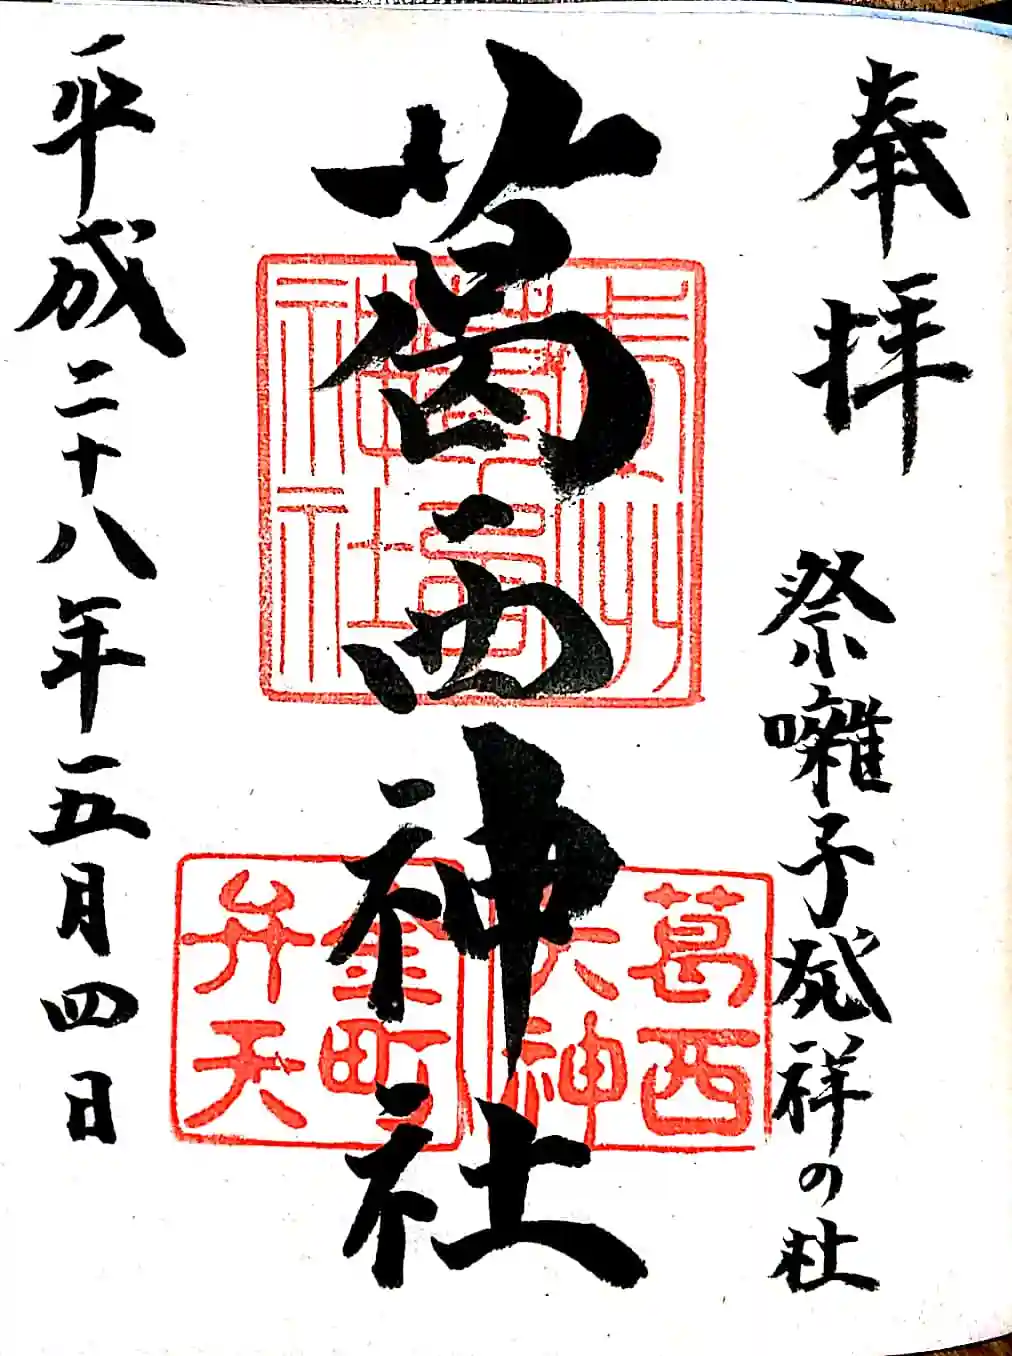 奉拝
祭囃子発祥の杜
葛西神社
平成二十八年五月四日
葛西
大神
金町
弁天